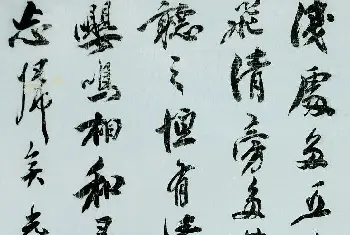 淺處多五
飛清旁多
聽之恒有
嚶鳴相和
忘歸矣